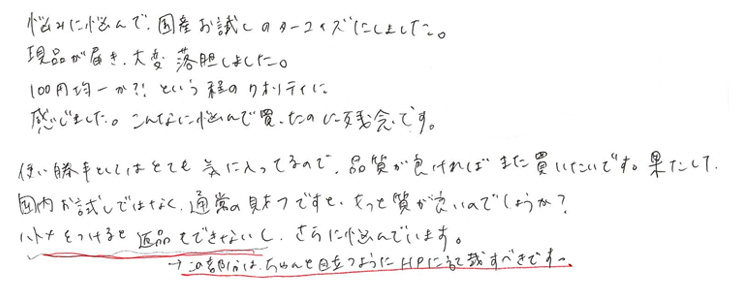 悩みに悩んで、国産お試しのターコイズにしました。
現品が届き、大変落胆しました。
100円均一か?!という程のクオリティに
感じました。こんなに悩んで買ったのに残念です。
使い勝手としてはとても気に入ってるので、品質が良ければまた買いたいです。果たして、
国内お試しではなく、通常の見本つですと、もっと質が良いのでしょうか?
ハトメをつけると返品もできないし、さらに悩んでいます。
→この部分は、ちゃんと目立つようにHPに記載すべきです。